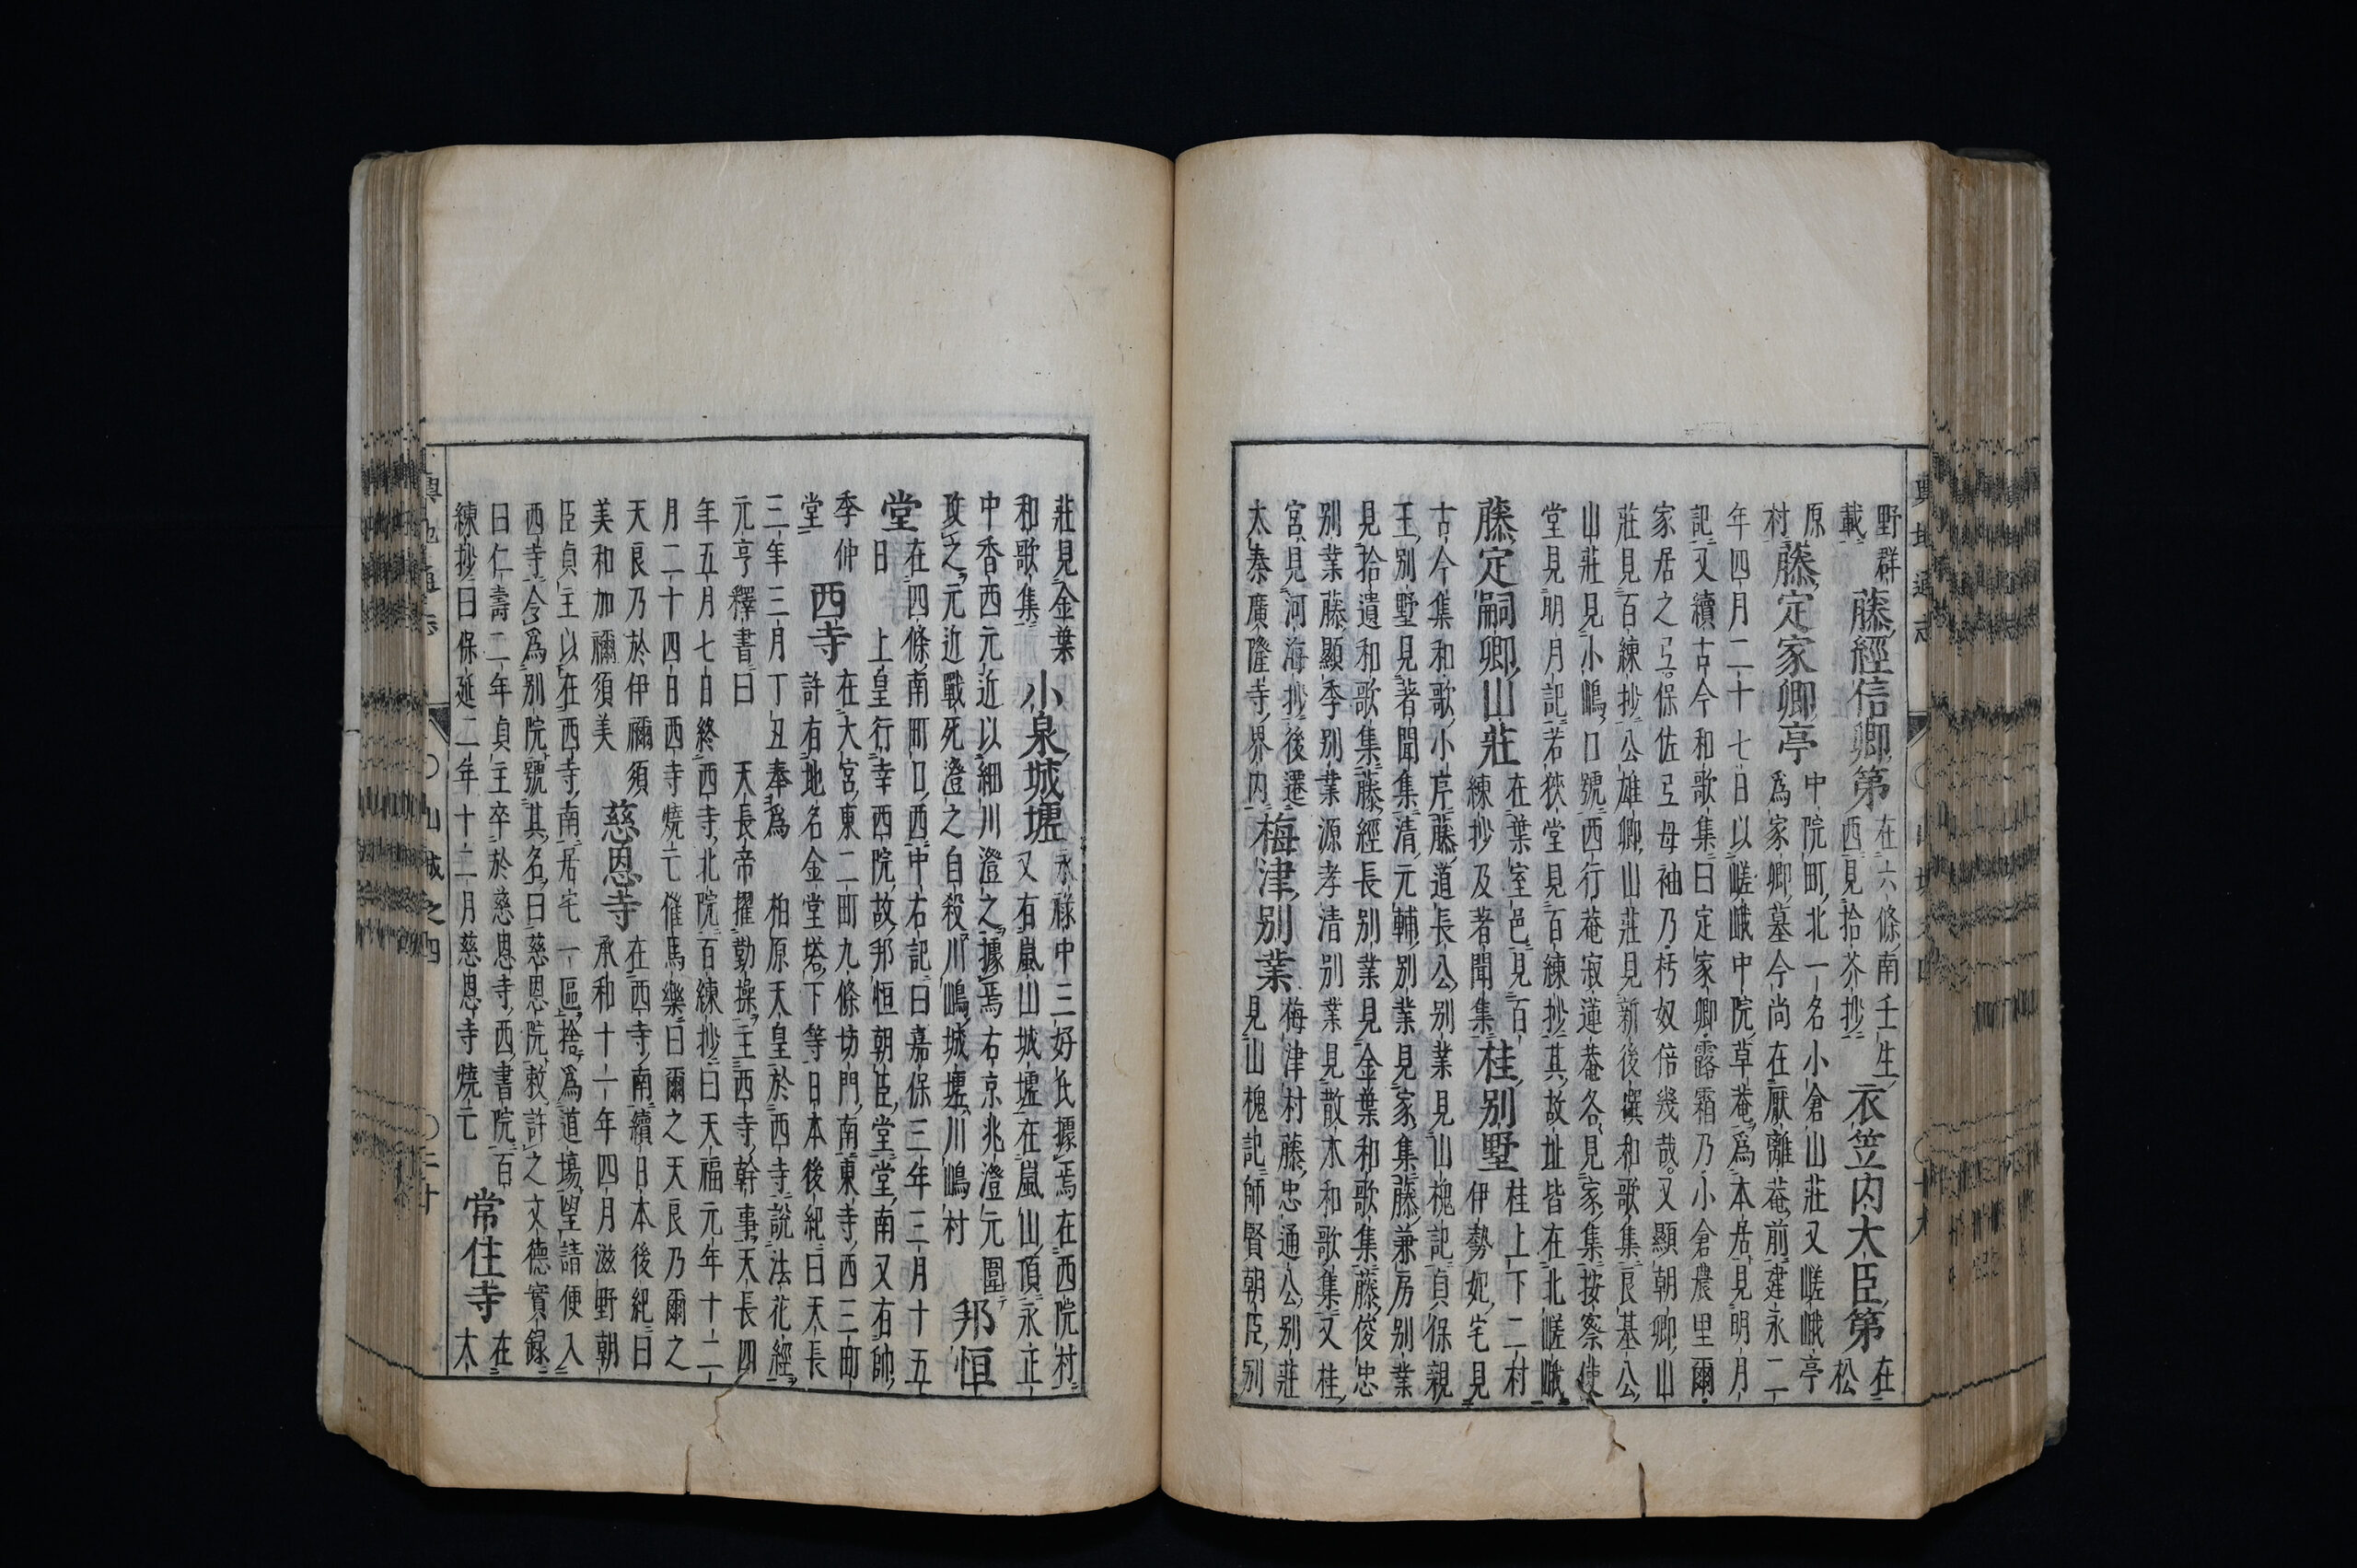 輿地通志 ○山城之四 ○十九
野群
載
藤經信卿第
在六條南壬生
西見拾芥抄
衣笠内大臣第
在
松
原
村
藤定家卿亭
中院町北一名小倉山莊又嵯峨亭
爲家卿墓今尚在厭離菴前建永二
年四月二十七日以嵯峨中院草菴爲本居見明月
記又續古今和歌集曰定家卿露霜乃小倉農里爾
家居之弖保佐弖母袖乃朽奴倍幾哉又顯朝卿山
莊見百練抄公雄卿山莊見新後撰和歌集良基公
山莊見小嶋口號西行菴寂蓮菴各見家集按察使
堂見明月記若狹堂見百練抄其故址皆在北嵯峨
藤定嗣卿山莊
在葉室邑見百
練抄及著聞集
桂別墅
桂上下二村
伊勢妃宅見
古今集和歌小序藤道長公別業見山槐記貞保親
王別墅見著聞集清元輔別業見家集藤兼房別業
見拾遺和歌集藤經長別業見金葉和歌集藤俊忠
別業藤顯季別業源孝清別業見散木和歌集又桂
宮見河海抄後遷
太秦廣隆寺界内
梅津別業
梅津村藤忠通公別莊
見山槐記師賢朝臣別
莊見金葉
和歌集
小泉城壚
永祿中三好氏據焉在西院村
又有嵐山城壚在嵐山頂永正
中香西元近以細川澄之據焉右京兆澄元圍
攻之元近戰死澄之自殺川嶋城壚川嶋村
邦恒
堂
在四條南町口西中右記曰嘉保三年三月十五
日 上皇行幸西院故邦恒朝臣堂堂南又有帥
季仲
堂
西寺
在大宮東二町九條坊門南東寺西三町
許有地名金堂塔下等日本後紀曰天長
三年三月丁丑奉爲 柏原天皇於西寺說法花經
元亨釋書曰 天長帝擢勤操主西寺幹事天長四
年五月七日終西寺北院百練抄曰天福元年十二
月二十四日西寺燒亡催馬樂曰爾之天良乃爾之
天良乃於伊禰須
美和加禰須美
慈恩寺
在西寺南續日本後紀曰
承和十一年四月滋野朝
臣貞主以在西寺南居宅一區捨爲道場望請便入
西寺令爲別院號其名曰慈恩院敕許之文德實録
曰仁壽二年貞主卒於慈恩寺西書院百
練抄曰保延二年十二月慈恩寺燒亡
常住寺
在
太
輿地通志 ○山城之四 ○二十